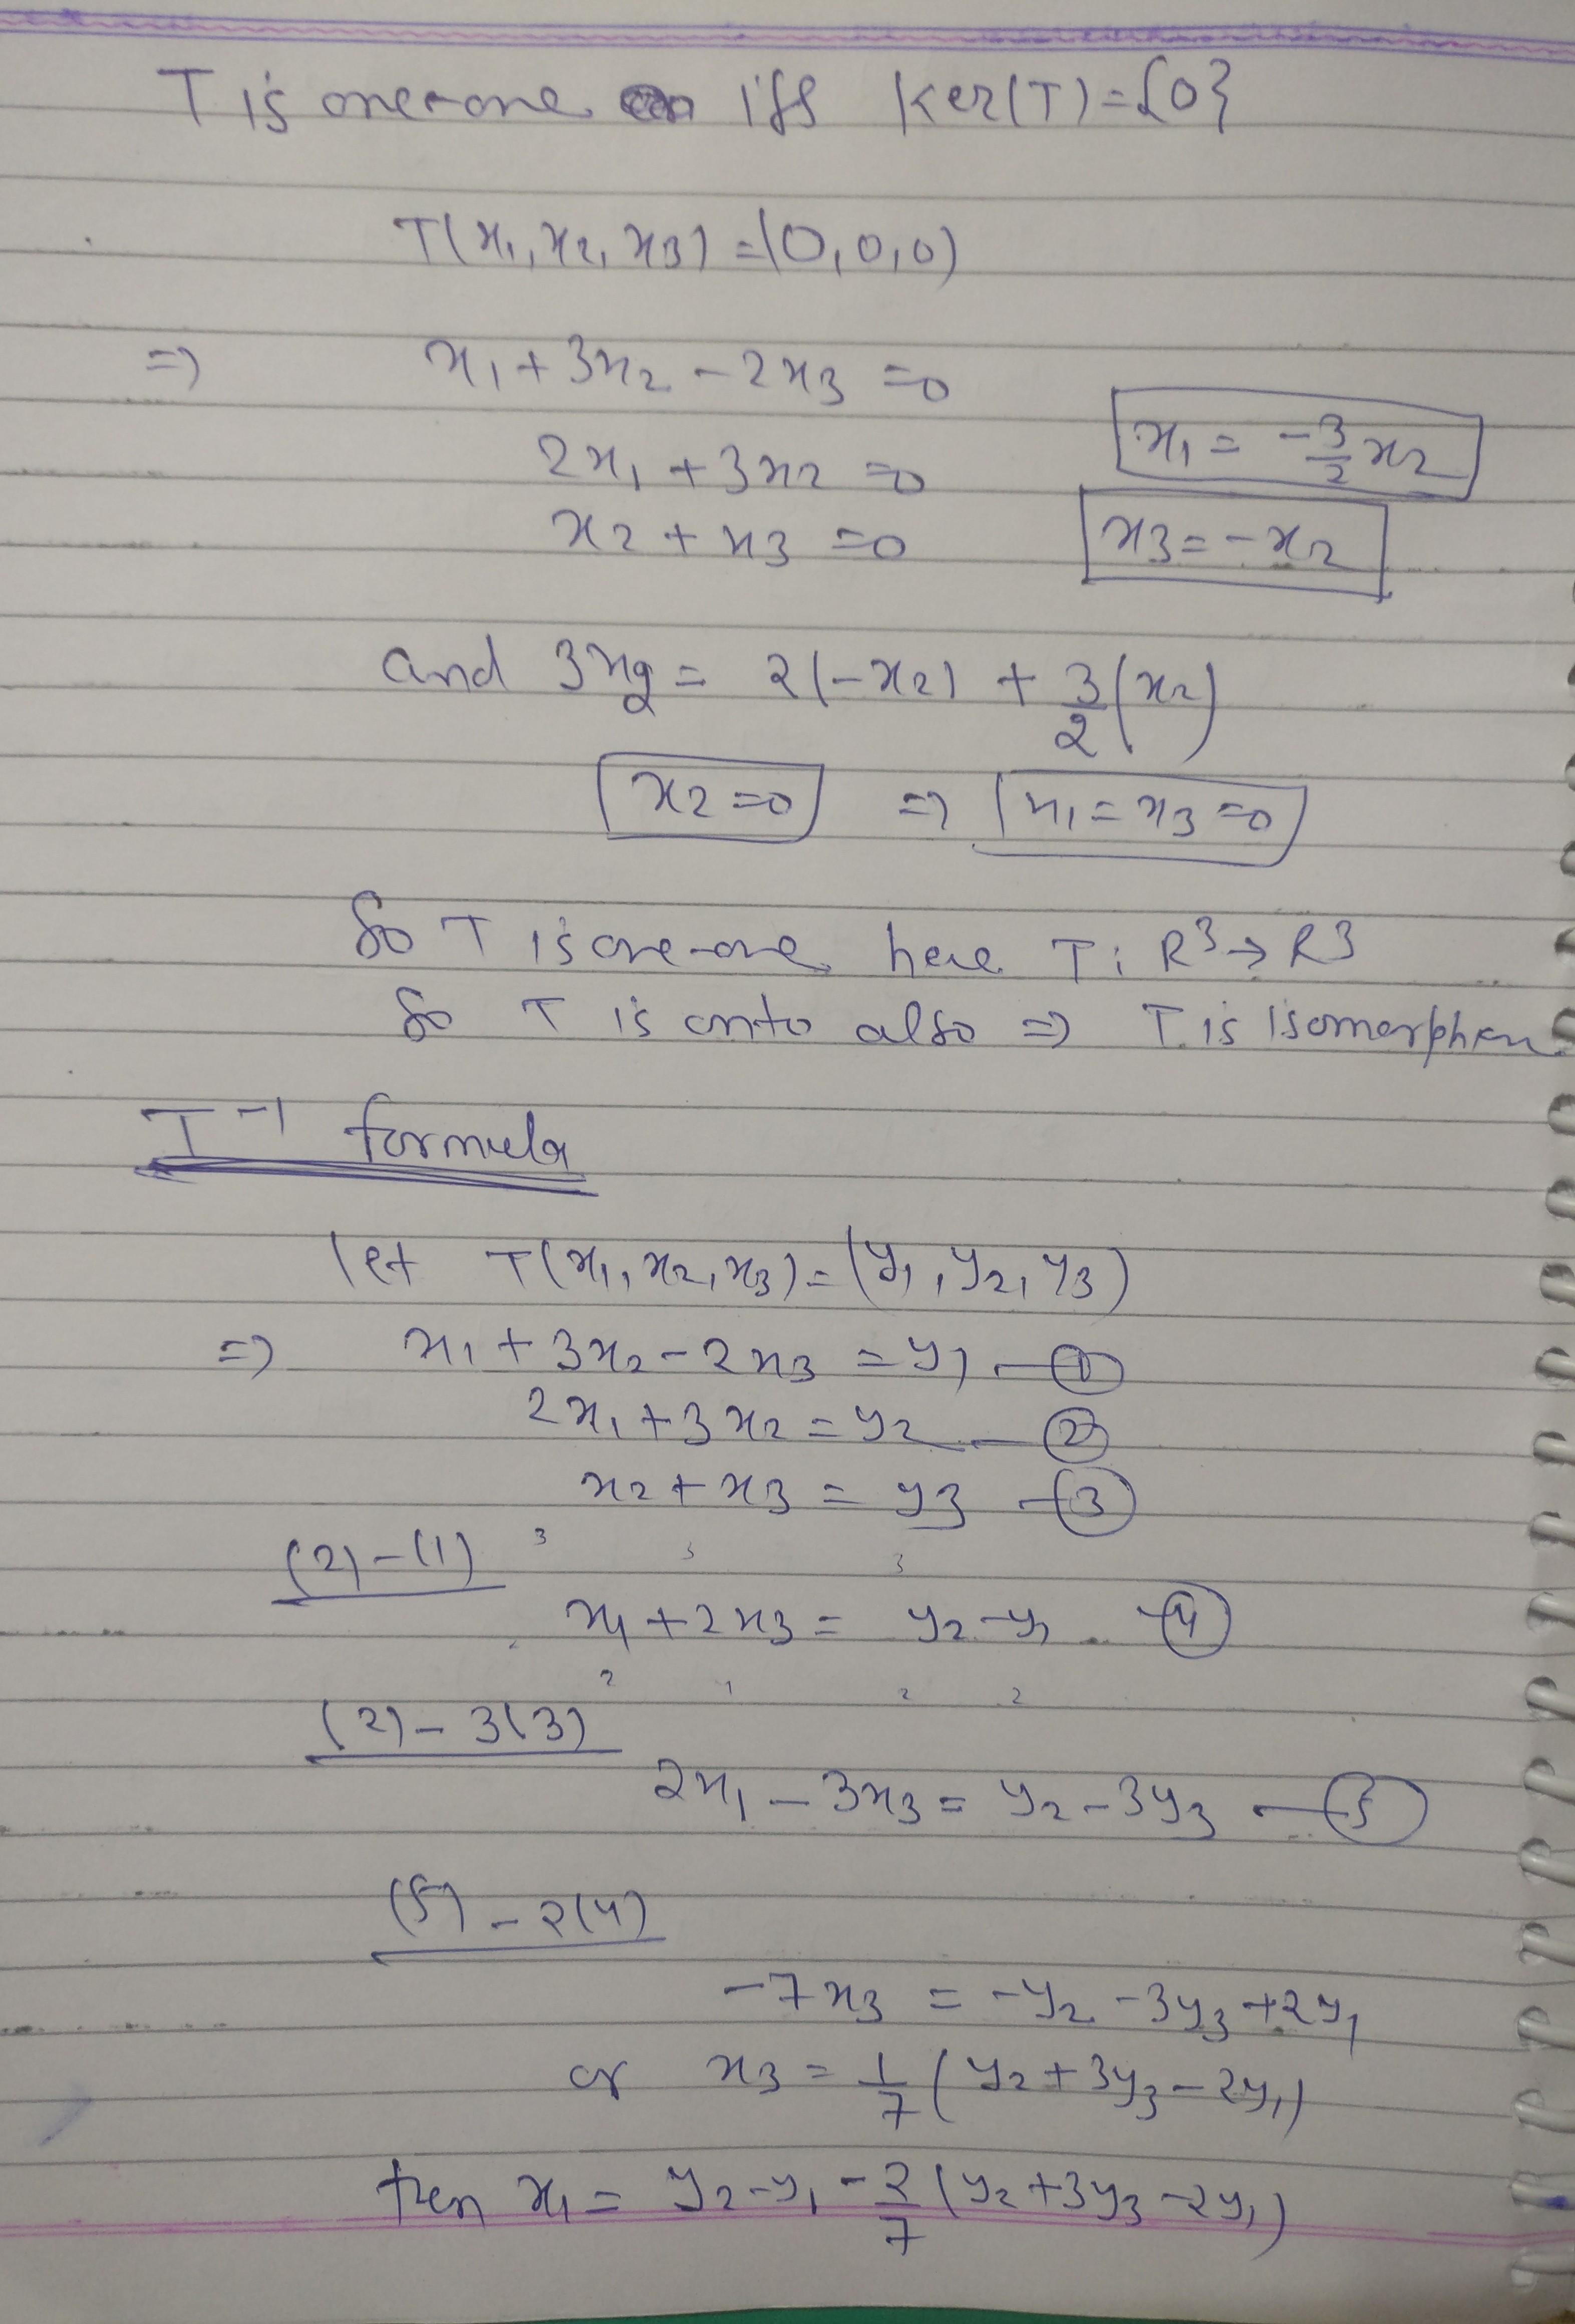 T is one-one iff Ker(T)={0}
T(x1, x2, x3) = (0,0,0)
=> x1 + 3x2 - 2x3 = 0
2x1 + 3x2 = 0 x1 = -3/2 x2
x2 + x3 = 0 x3 = -x2
and 3x2 = 2(-x2) + 3/2 (x2)
x2 = 0 => x1 = x3 = 0
So T is one-one here T: R3 → R3
So T is onto also => T is isomorphism
T^-1 formula
let T(x1, x2, x3) = (y1, y2, y3)
=> x1 + 3x2 - 2x3 = y1 — ①
2x1 + 3x2 = y2 — ②
x2 + x3 = y3 — ③
(2) - (1) 3 3 3
x1 + 2x3 = y2 - y1 — ④
2 1 2 2
(2) - 3(3)
2x1 - 3x3 = y2 - 3y3 — ⑤
(5) - 2(4)
-7x3 = -y2 - 3y3 + 2y1
or x3 = 1/7 (y2 + 3y3 - 2y1)
then x1 = y2 - y1 - 2/7 (y2 + 3y3 - 2y1)